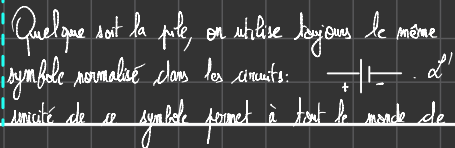 Quelque soit la pile, on utilise toujours le même
symbole normalisé dans les circuits: + - . L'
unicité de ce symbole permet à tout le monde de